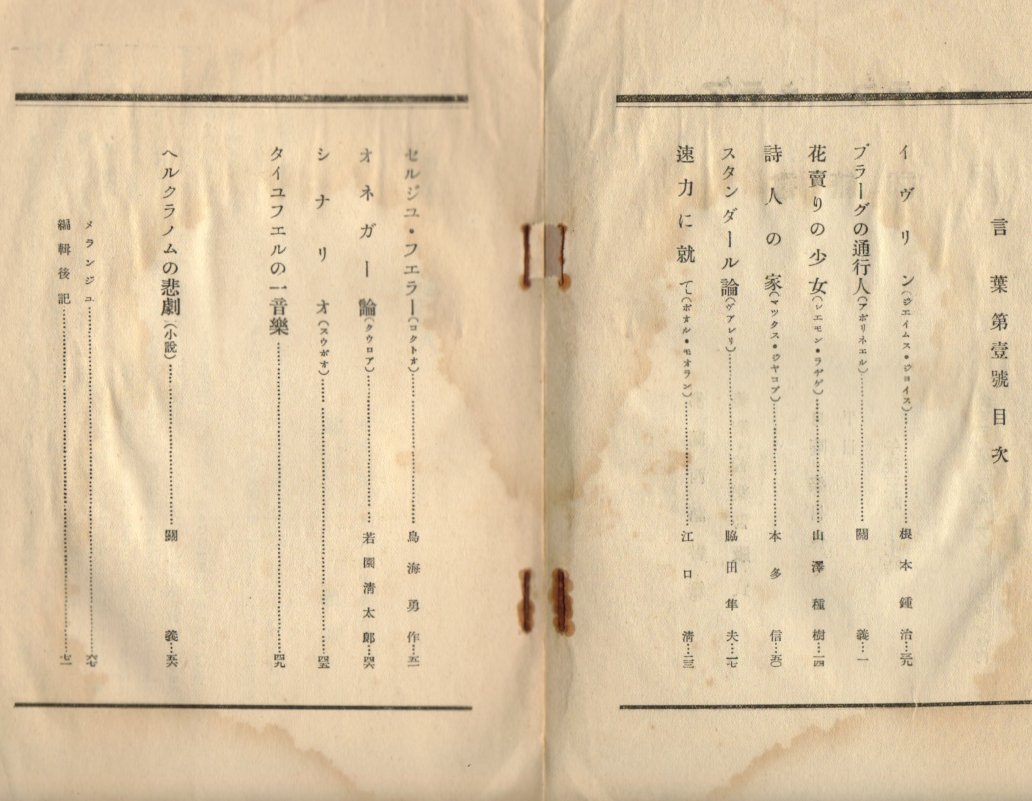 言葉第壹號目次
イヴリン(ヂエイムス・ジヨイス)……根本鍾治…元
プラーグの通行人(アポリネエル)……關義…一
花賣りの少女(レエモン・ラヂゲ)……山澤種樹…一四
詩人の家(マツクス・ジヤコブ)……本多信…五〇
スタンダール論(ヴアレリ)……脇田隼夫…一七
速力に就て(ポオル・モオラン)……江口清…二三
セルジユ・フエラー(コクトオ)……鳥海勇作…五一
オネガー論(クウロア)……若園淸太郎…四六
シナリオ(スウポオ)……四五
タイユフエルの一音樂……四九
ヘルクラノムの悲劇(小說)……關義…五六
メランジユ……六七
編輯後記……七一